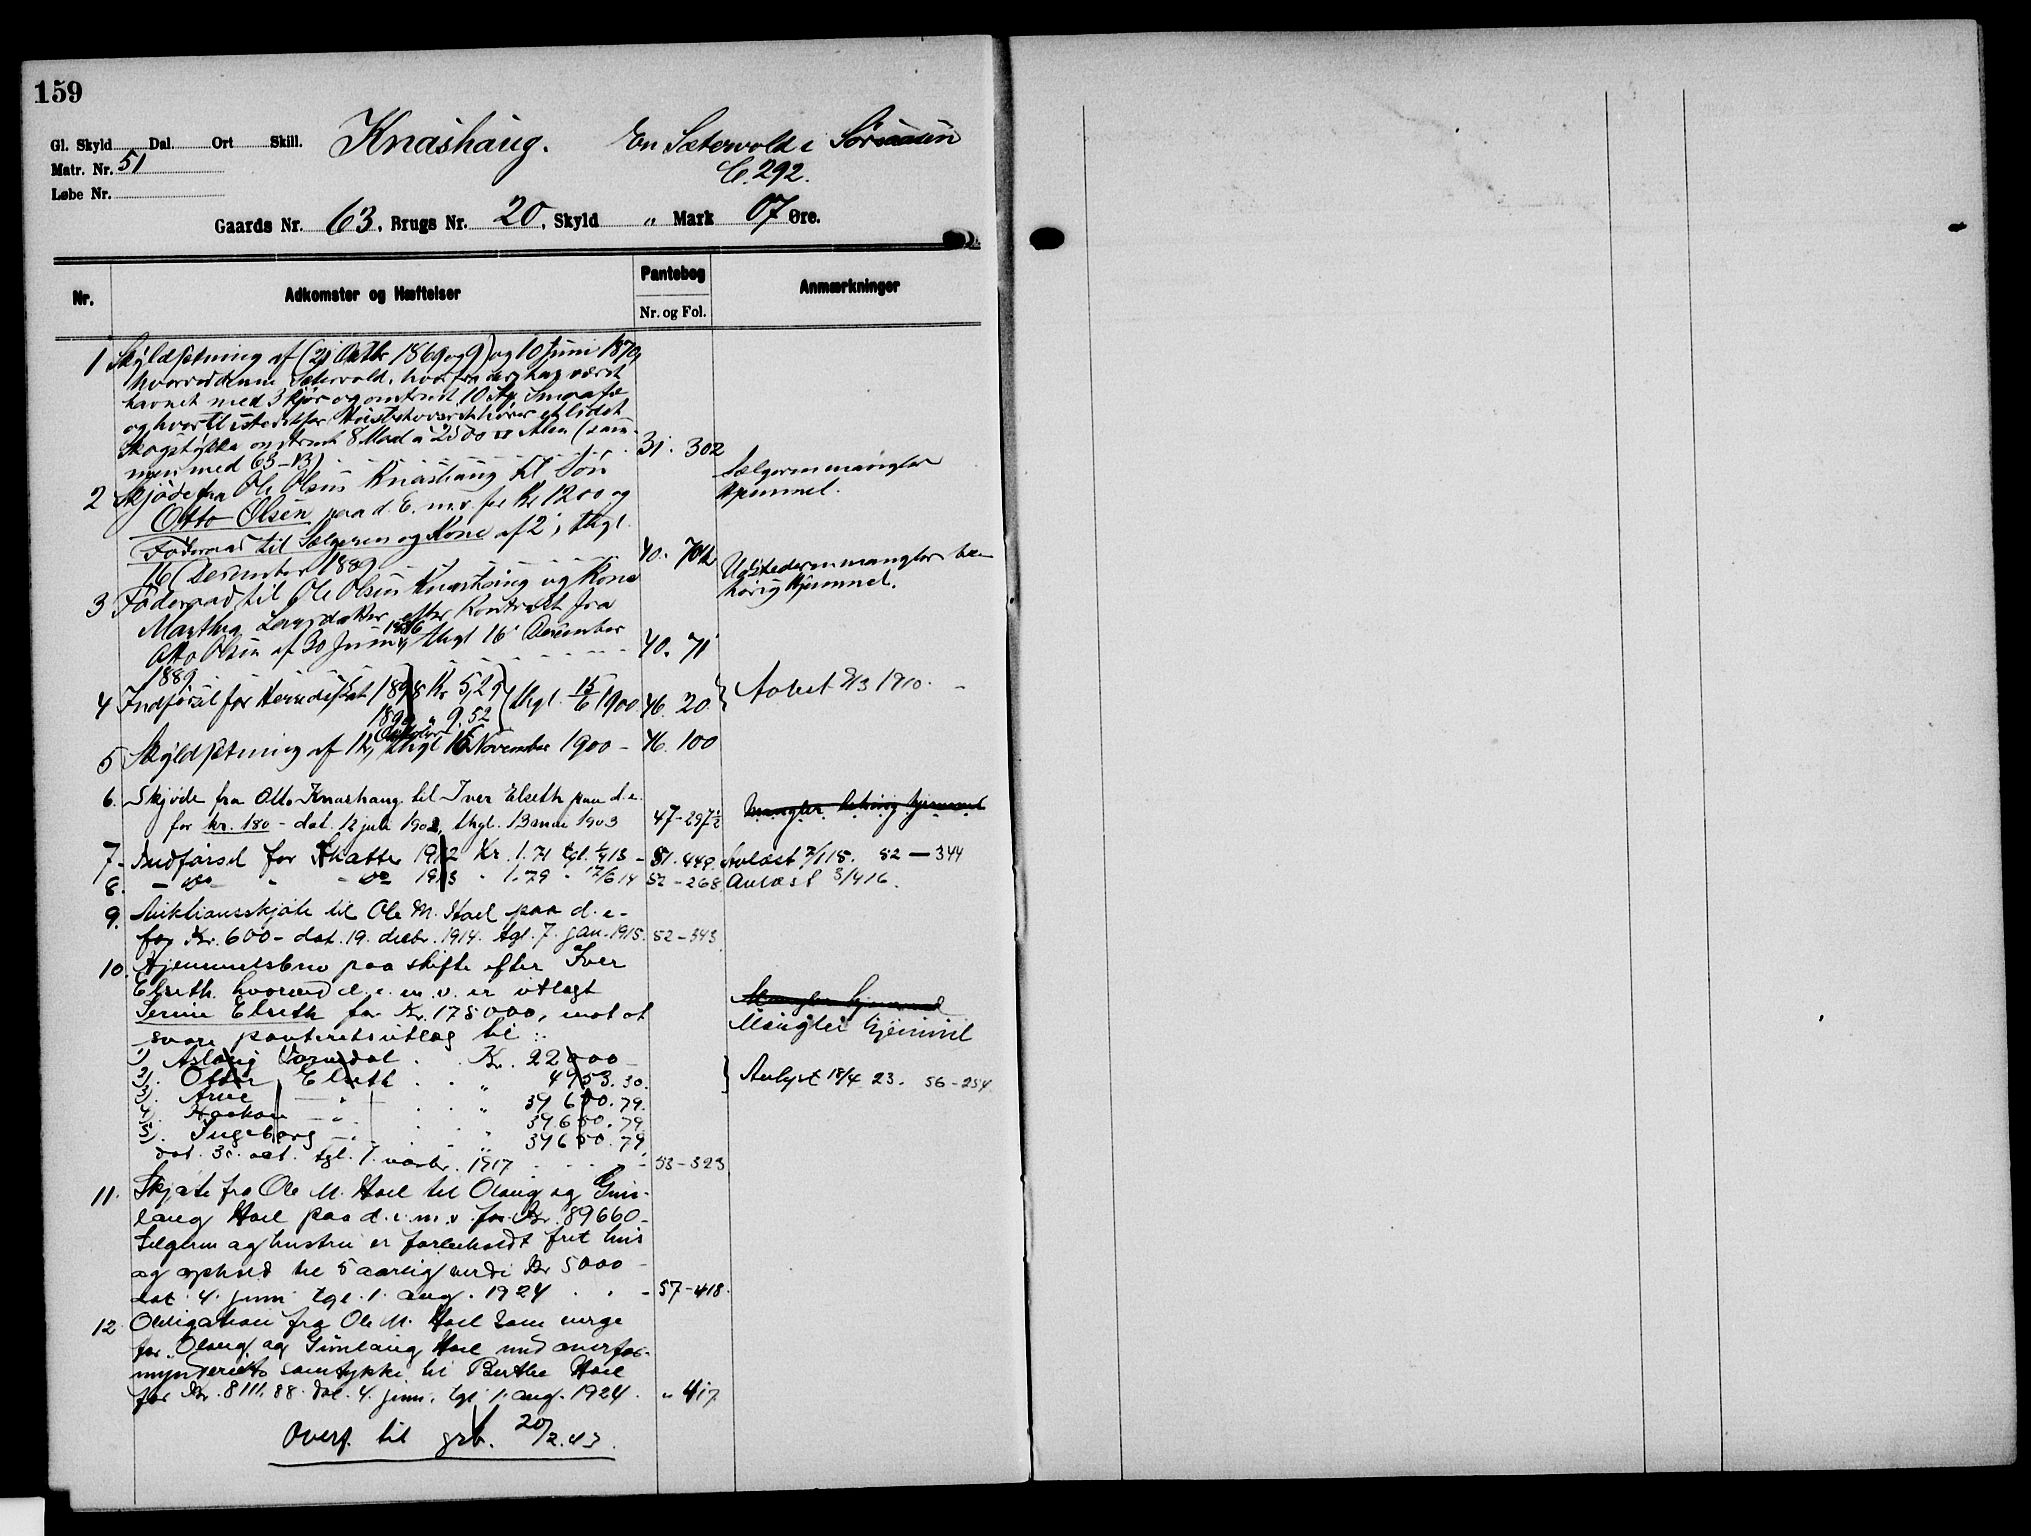 159
Gl. Skyld Dal. Ort Skill. Knashaug. En Sætervold i Søraasen
Matr. Nr. 51 C. 292.
Løbe Nr.
Gaards Nr. 63, Brugs Nr. 20, Skyld " Mark 07 Øre.
Nr. Adkomster og Hæftelser Pantebog Anmærkninger
Nr. og Fol.
1 Skyldsætning af (21 Oktbr 1869 og 9) og 10 Juni 1870,
hvorved denne Sætervold, hvorfra der har været
havnet med 3 Kjør og omtrent 10 Stk. Smaafæ
og hvortil istedetfor hører et lidet
Skogstykke omtrent 8 Maal a 2500 □ Alen (sam-
men med 63-13) 31. 302
2 Skjøde fra Ole Olsen Knashaug til Søn Sælgeren mangler
Otto Olsen paa d. E. m.v. for Kr 1200 og Hjemmel.
Føderaad til Sælgeren og Kone af 2, thgl
16 December 1889 40. 70
3 Føderaad til Ole Olsen Knashaug og Kone Udstederen mangler be-
Marthea Larsdatter efter Kontrakt fra hørig Hjemmel.
Otto Olsen af 30 Juni 1886, thgl 16 December
1889 40. 71
4 Indførsel for Herredsskat 1898 Kr 5,29 thgl. 15/6 1900 46. 20 Avlæst 9/3 1910.
1899 " 9,52
5 Skyldsætning af 12 Oktober, thgl 15 November 1900 - 46. 100
6. Skjøde fra Otto Knashaug til Iver Elseth paa d. e. Mangler behørig hjemmel
for kr. 180 - dat. 12 juli 1902, thgl. 13 1903 47-297½
7. Indførsel for Skatter 1912 Kr. 1.71 tgl. 13 - 51. 449. Avlæst 7/1 15. 52-344
8. - do - - do 1913 " 1.79 " 17/6 14 52-268 Avlæst 3/4 16.
9. Auktionsskjøte til Ole M. Hoel paa d. e.
for Kr. 600 - dat. 19. decbr. 1914. tgl. 7. jan. 1915. 52-343
10. Hjemmelsbrev paa skifte efter Iver
Elseth, hvorved d. e. m. v. er utlagt Mangler hjemmel
Serine Elseth for Kr. 175000, mot at Mangler hjemmel
svare panteretsutlæg til:
1) Aslaug Kr. 22000
2). Otter Elseth " 4953.30. Avlyst 18/4 23. 56-254
3). Arne - " - " 39 650.79.
4). Haakon - " - " 39650.79
5). Ingeborg - " - " 39650.79
dat. 30. okt. tgl. 7. novbr. 1917 - 53-323
11. Skjøte fra Ole M. Hoel til Olaug og Gun-
laug Hoel paa d. e. m. v. for Kr. 89660 -
Selgeren og hustru er forbeholdt frit hus
og ophold til 5 aarlig verdi Kr 5000 -
dat. 4. juni tgl. 1. aug. 1924 - 57-418.
12. Obligation fra Ole M. Hoel som verge
for Olaug og Gunlaug Hoel med overfor-
mynderiets samtykke til Berthe Hoel
for Kr. 8111.88 dat. 4. juni, tgl. 1. aug. 1924. " 417
Overf. til grb. 20/2.43.